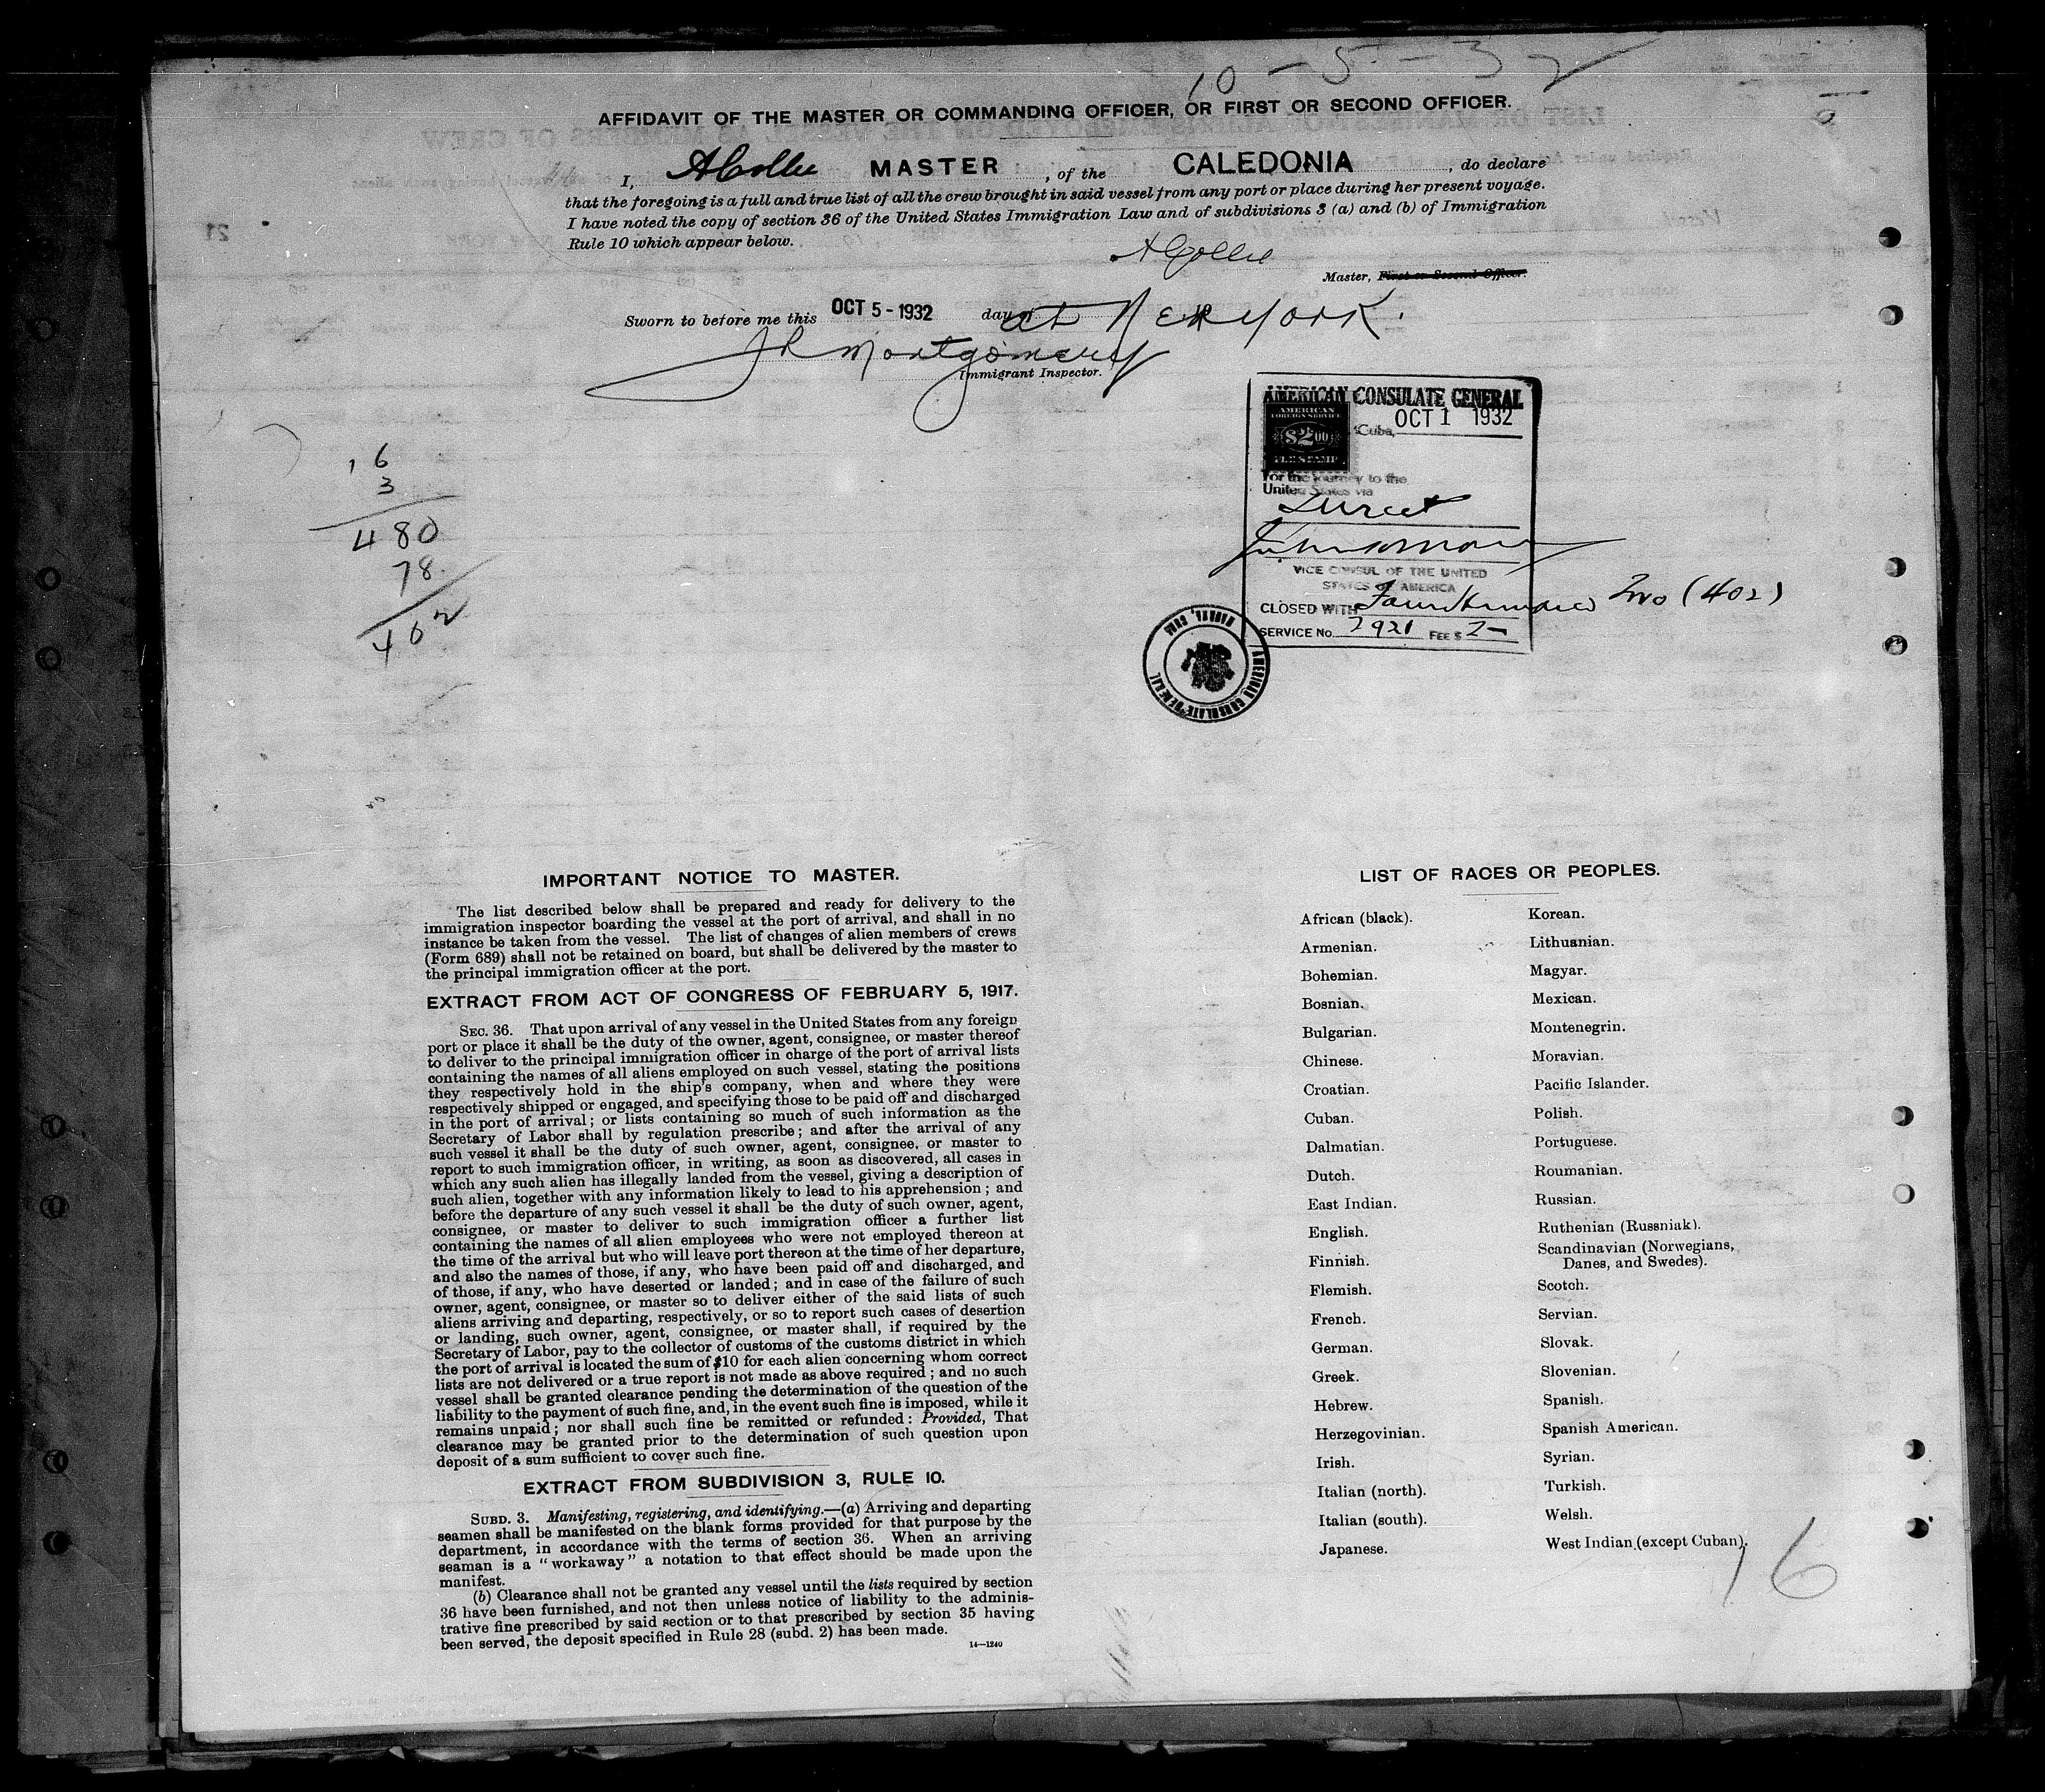 10-5-32
AFFIDAVIT OF THE MASTER OR COMMANDING OFFICER, OR FIRST OR SECOND OFFICER.
I, A Collie MASTER, of the CALEDONIA, do declare
that the foregoing is a full and true list of all the crew brought in said vessel from any port or place during her present voyage.
I have noted the copy of section 36 of the United States Immigration Law and of subdivisions 3 (a) and (b) of Immigration
Rule 10 which appear below.
A Collie
Master, First or Second Officer.
Sworn to before me this OCT 5-1932 day at New York.
J R Montgomery
Immigrant Inspector.
16
3
480
78
402
AMERICAN CONSULATE GENERAL
AMERICAN
FOREIGN SERVICE
$2.00
FEE STAMP
Cuba, OCT 1 1932
For the journey to the
United States via
Direct
VICE CONSUL OF THE UNITED
STATES OF AMERICA
CLOSED WITH Four Hundred Two (402)
SERVICE No. 2921 FEE $ 2-
AMERICAN CONSULATE GENERAL
HABANA, CUBA
IMPORTANT NOTICE TO MASTER.
The list described below shall be prepared and ready for delivery to the
immigration inspector boarding the vessel at the port of arrival, and shall in no
instance be taken from the vessel. The list of changes of alien members of crews
(Form 689) shall not be retained on board, but shall be delivered by the master to
the principal immigration officer at the port.
EXTRACT FROM ACT OF CONGRESS OF FEBRUARY 5, 1917.
SEC. 36. That upon arrival of any vessel in the United States from any foreign
port or place it shall be the duty of the owner, agent, consignee, or master thereof
to deliver to the principal immigration officer in charge of the port of arrival lists
containing the names of all aliens employed on such vessel, stating the positions
they respectively hold in the ship's company, when and where they were
respectively shipped or engaged, and specifying those to be paid off and discharged
in the port of arrival; or lists containing so much of such information as the
Secretary of Labor shall by regulation prescribe; and after the arrival of any
such vessel it shall be the duty of such owner, agent, consignee, or master to
report to such immigration officer, in writing, as soon as discovered, all cases in
which any such alien has illegally landed from the vessel, giving a description of
such alien, together with any information likely to lead to his apprehension; and
before the departure of any such vessel it shall be the duty of such owner, agent,
consignee, or master to deliver to such immigration officer a further list
containing the names of all alien employees who were not employed thereon at
the time of the arrival but who will leave port thereon at the time of her departure,
and also the names of those, if any, who have been paid off and discharged, and
of those, if any, who have deserted or landed; and in case of the failure of such
owner, agent, consignee, or master so to deliver either of the said lists of such
aliens arriving and departing, respectively, or so to report such cases of desertion
or landing, such owner, agent, consignee, or master shall, if required by the
Secretary of Labor, pay to the collector of customs of the customs district in which
the port of arrival is located the sum of $10 for each alien concerning whom correct
lists are not delivered or a true report is not made as above required; and no such
vessel shall be granted clearance pending the determination of the question of the
liability to the payment of such fine, and, in the event such fine is imposed, while it
remains unpaid; nor shall such fine be remitted or refunded: Provided, That
clearance may be granted prior to the determination of such question upon
deposit of a sum sufficient to cover such fine.
EXTRACT FROM SUBDIVISION 3, RULE 10.
SUBD. 3. Manifesting, registering, and identifying.—(a) Arriving and departing
seamen shall be manifested on the blank forms provided for that purpose by the
department, in accordance with the terms of section 36. When an arriving
seaman is a "workaway" a notation to that effect should be made upon the
manifest.
(b) Clearance shall not be granted any vessel until the lists required by section
36 have been furnished, and not then unless notice of liability to the adminis-
trative fine prescribed by said section or to that prescribed by section 35 having
been served, the deposit specified in Rule 28 (subd. 2) has been made.
14—1240
LIST OF RACES OR PEOPLES.
African (black).
Armenian.
Bohemian.
Bosnian.
Bulgarian.
Chinese.
Croatian.
Cuban.
Dalmatian.
Dutch.
East Indian.
English.
Finnish.
Flemish.
French.
German.
Greek.
Hebrew.
Herzegovinian.
Irish.
Italian (north).
Italian (south).
Japanese.
Korean.
Lithuanian.
Magyar.
Mexican.
Montenegrin.
Moravian.
Pacific Islander.
Polish.
Portuguese.
Roumanian.
Russian.
Ruthenian (Russniak).
Scandinavian (Norwegians,
Danes, and Swedes).
Scotch.
Servian.
Slovak.
Slovenian.
Spanish.
Spanish American.
Syrian.
Turkish.
Welsh.
West Indian (except Cuban).
16